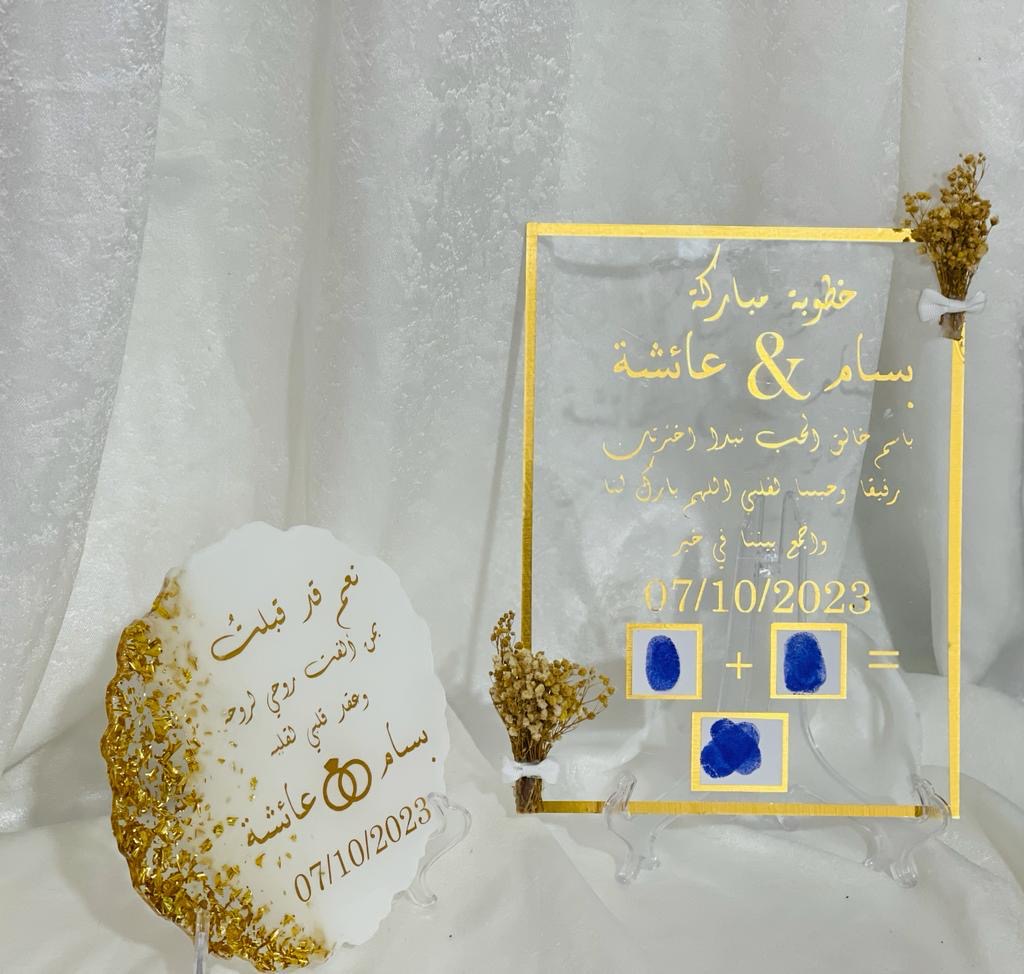 خطوبة مباركة
بسام & عائشة
باسم خالق الحب نبدا اخترتك
رفيقا وحبيبا لقلبي اللهم بارك لنا
واجمع بيننا في خير
07/10/2023
+ =
نعم قد قبلتُ
بمن ألفت روحي لروحه
وعقد قلبي لقلبه
بسام عائشة
07/10/2023